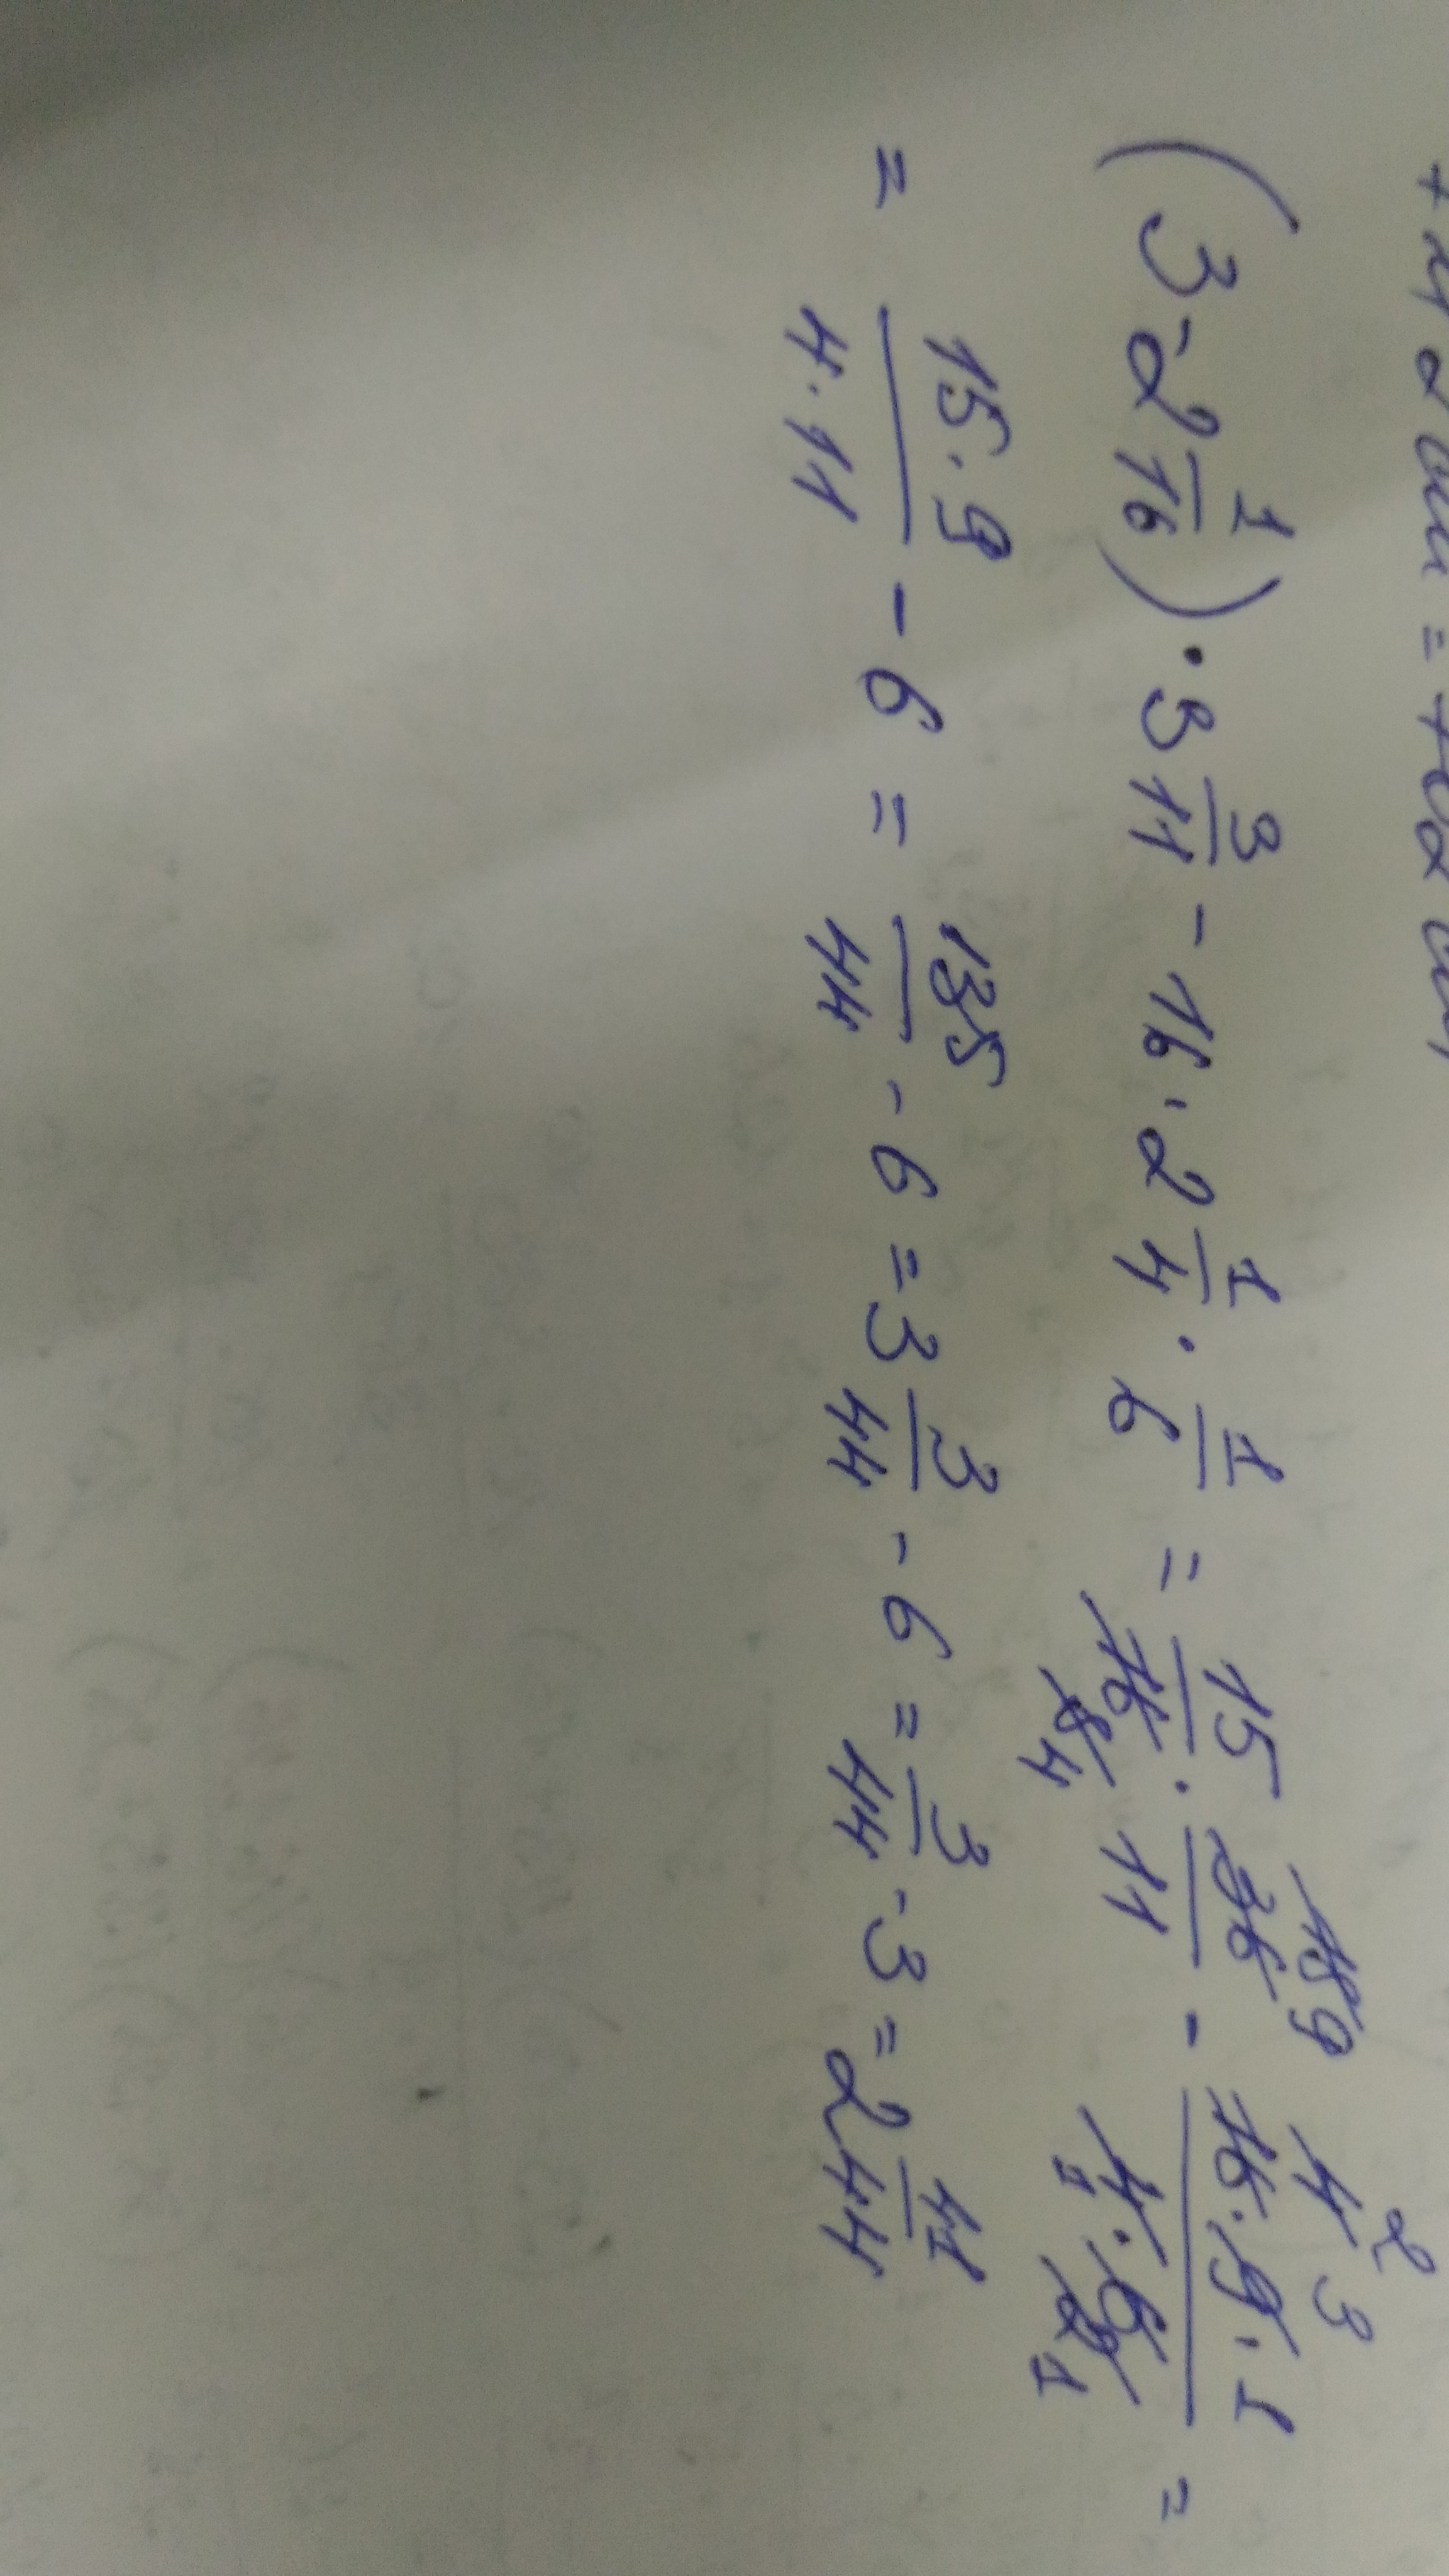 (3-2 1/16)·3 3/11 - 16·2 1/4·1/6 = 15/16·36/11 - 16·9·1/4·6 =
= 15·9/4·11 - 6 = 135/44 - 6 = 3 3/44 - 6 = 3/44 - 3 = 2 41/44